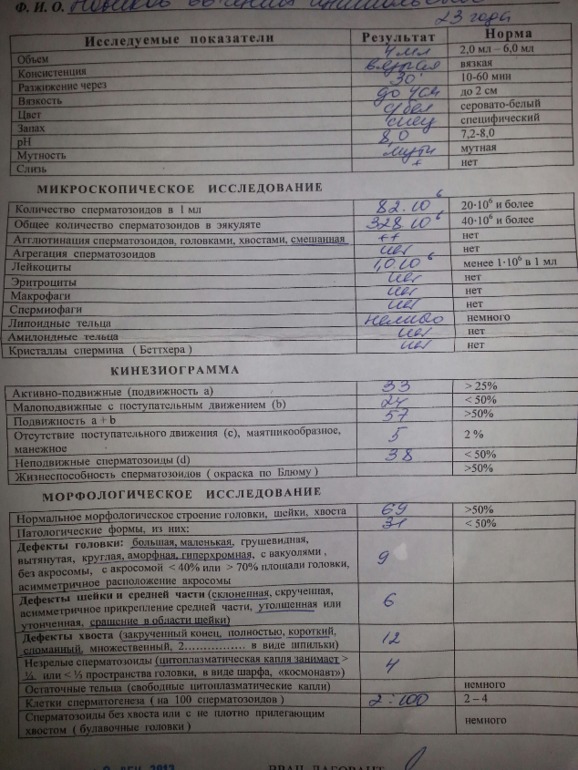 Ф. И. О.
23 года
Исследуемые показатели Результат Норма
Объем 4 мл 2,0 мл – 6,0 мл
Консистенция вязкая вязкая
Разжижение через 30' 10-60 мин
Вязкость до 4см до 2 см
Цвет с/бел серовато-белый
Запах спец специфический
pH 8,0 7,2-8,0
Мутность мутн мутная
Слизь + нет
МИКРОСКОПИЧЕСКОЕ ИССЛЕДОВАНИЕ
Количество сперматозоидов в 1 мл 82·10⁶ 20·10⁶ и более
Общее количество сперматозоидов в эякуляте 328·10⁶ 40·10⁶ и более
Агглютинация сперматозоидов, головками, хвостами, смешанная ++ нет
Агрегация сперматозоидов нет нет
Лейкоциты 1,0·10⁶ менее 1·10⁶ в 1 мл
Эритроциты нет нет
Макрофаги нет нет
Спермиофаги нет нет
Липоидные тельца немного немного
Амилоидные тельца нет нет
Кристаллы спермина ( Беттхера ) нет нет
КИНЕЗИОГРАММА
Активно-подвижные (подвижность a) 33 > 25%
Малоподвижные с поступательным движением (b) 24 < 50%
Подвижность a + b 57 >50%
Отсутствие поступательного движения (c), маятникообразное,
манежное 5 2 %
Неподвижные сперматозоиды (d) 38 < 50%
Жизнеспособность сперматозоидов ( окраска по Блюму ) >50%
МОРФОЛОГИЧЕСКОЕ ИССЛЕДОВАНИЕ
Нормальное морфологическое строение головки, шейки, хвоста 69 >50%
Патологические формы, из них: 31 < 50%
Дефекты головки: большая, маленькая, грушевидная,
вытянутая, круглая, аморфная, гиперхромная, с вакуолями ,
без акросомы, с акросомой < 40% или > 70% площади головки,
асимметричное расположение акросомы 9
Дефекты шейки и средней части (склоненная, скрученная,
асимметричное прикрепление средней части, утолщенная или
утонченная, сращение в области шейки) 6
Дефекты хвоста (закрученный конец, полностью, короткий,
сломанный, множественный, 2................ в виде шпильки) 12
Незрелые сперматозоиды (цитоплазматическая капля занимает >
или < ⅓ пространства головки, в виде шарфа, «космонавт») 4
Остаточные тельца (свободные цитоплазматические капли) немного
Клетки сперматогенеза ( на 100 сперматозоидов ) 2:100 2 – 4
Сперматозоиды без хвоста или с не плотно прилегающим
хвостом ( булавочные головки ) немного
ВРАЧ ЛАБОРАНТ